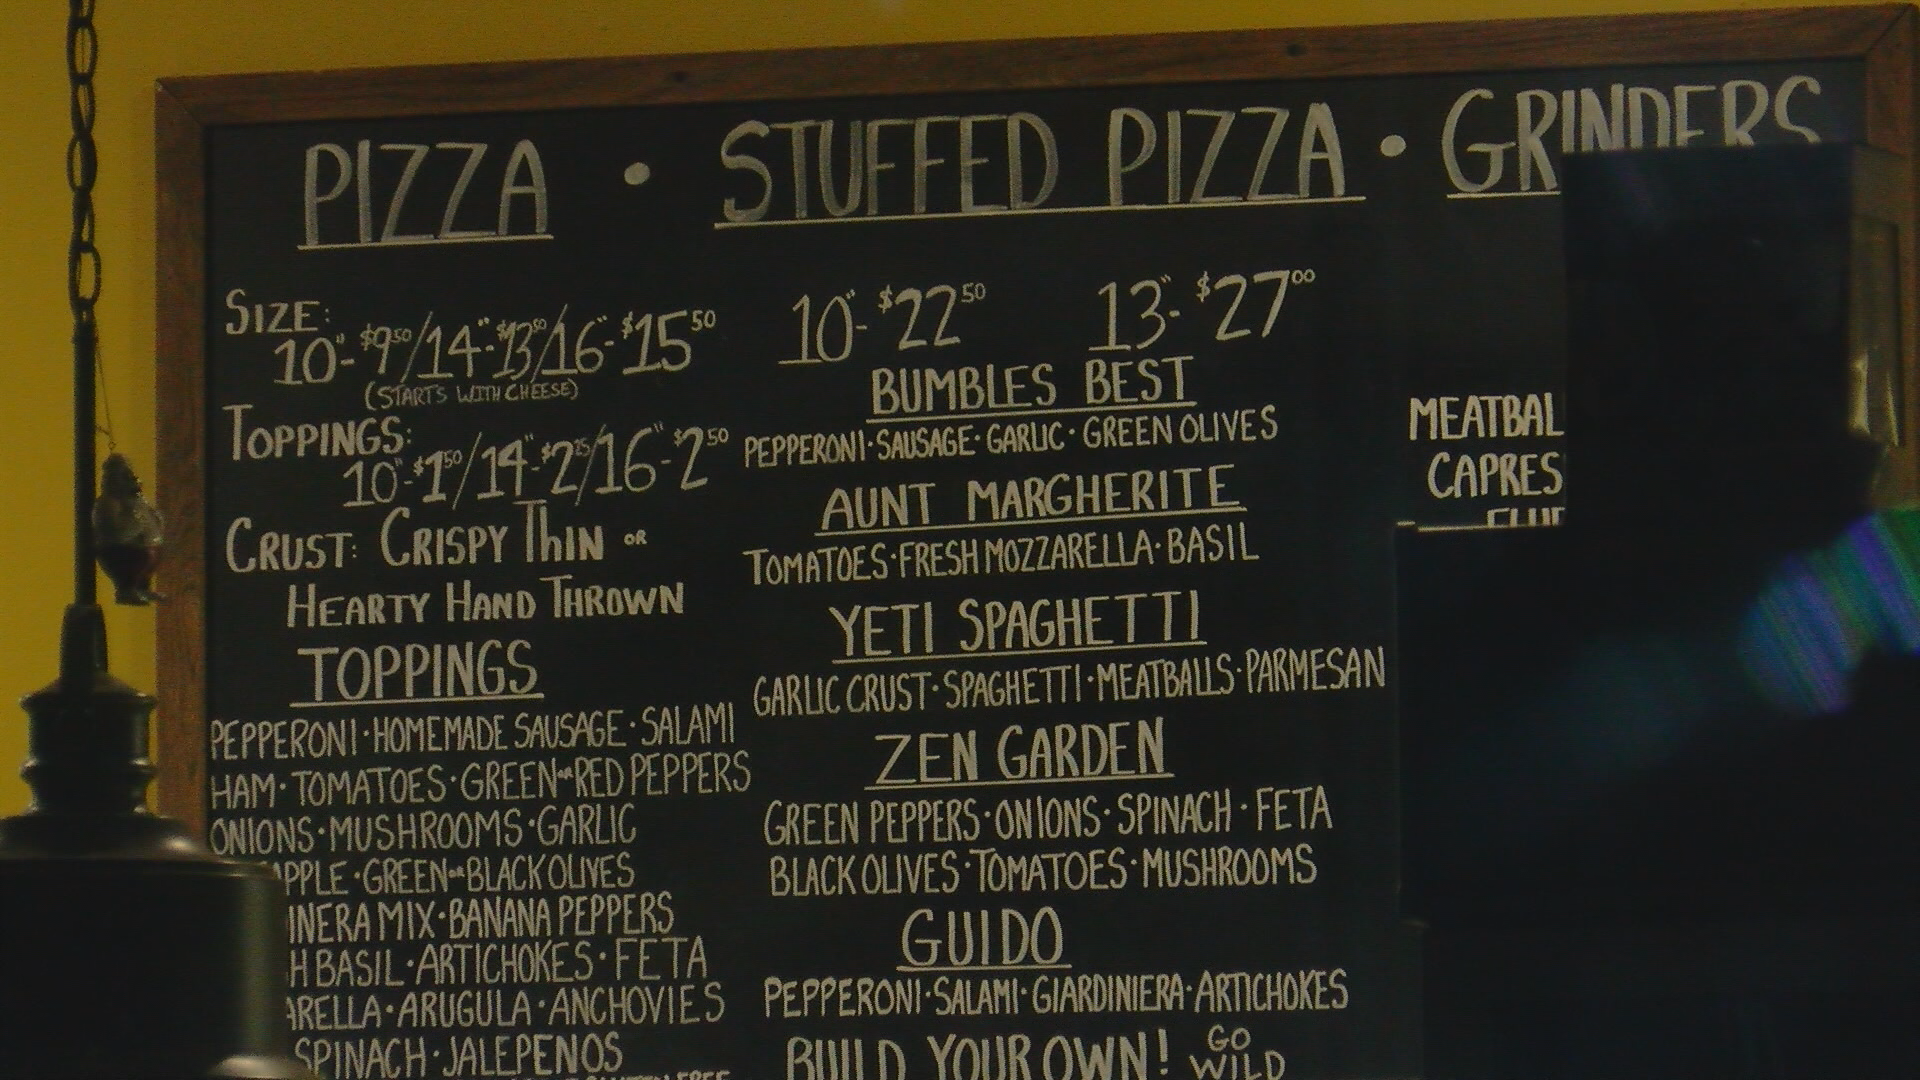 PIZZA • STUFFED PIZZA • GRINDERS
SIZE:
10"-$9.50/14"-$13.50/16"-$15.50
(STARTS WITH CHEESE)
TOPPINGS:
10"-$1.50/14"-$2.25/16"-$2.50
CRUST: CRISPY THIN OR
HEARTY HAND THROWN
TOPPINGS
PEPPERONI·HOMEMADE SAUSAGE·SALAMI
HAM·TOMATOES·GREEN OR RED PEPPERS
ONIONS·MUSHROOMS·GARLIC
APPLE·GREEN OR BLACK OLIVES
INERA MIX·BANANA PEPPERS
H BASIL·ARTICHOKES·FETA
ARELLA·ARUGULA·ANCHOVIES
SPINACH·JALEPENOS
10"-$22.50 13"-$27.00
BUMBLES BEST
PEPPERONI·SAUSAGE·GARLIC·GREEN OLIVES
AUNT MARGHERITE
TOMATOES·FRESH MOZZARELLA·BASIL
YETI SPAGHETTI
GARLIC CRUST·SPAGHETTI·MEATBALLS·PARMESAN
ZEN GARDEN
GREEN PEPPERS·ONIONS·SPINACH·FETA
BLACK OLIVES·TOMATOES·MUSHROOMS
GUIDO
PEPPERONI·SALAMI·GIARDINIERA·ARTICHOKES
BUILD YOUR OWN! GO WILD
MEATBAL
CAPRES